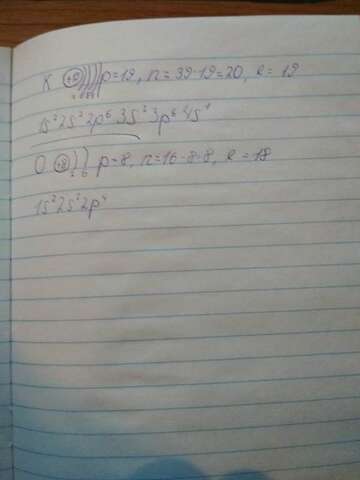 K +19 ) ) ) ) p=19, n=39-19=20, e=19
1s²2s²2p⁶3s²3p⁶4s¹
O +8 ) ) p=8, n=16-8=8, e=18
2 6
1s²2s²2p⁴